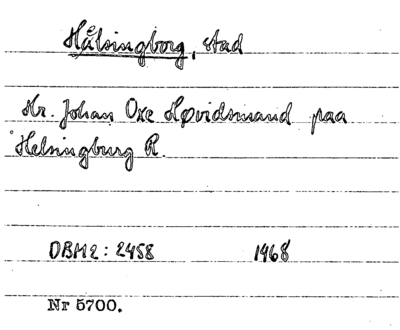 Hälsingborg, stad
Hr. Johan Oxe Høvidsmand paa
Helsingburg R.
DBM2: 2458 1468
Nr 5700.